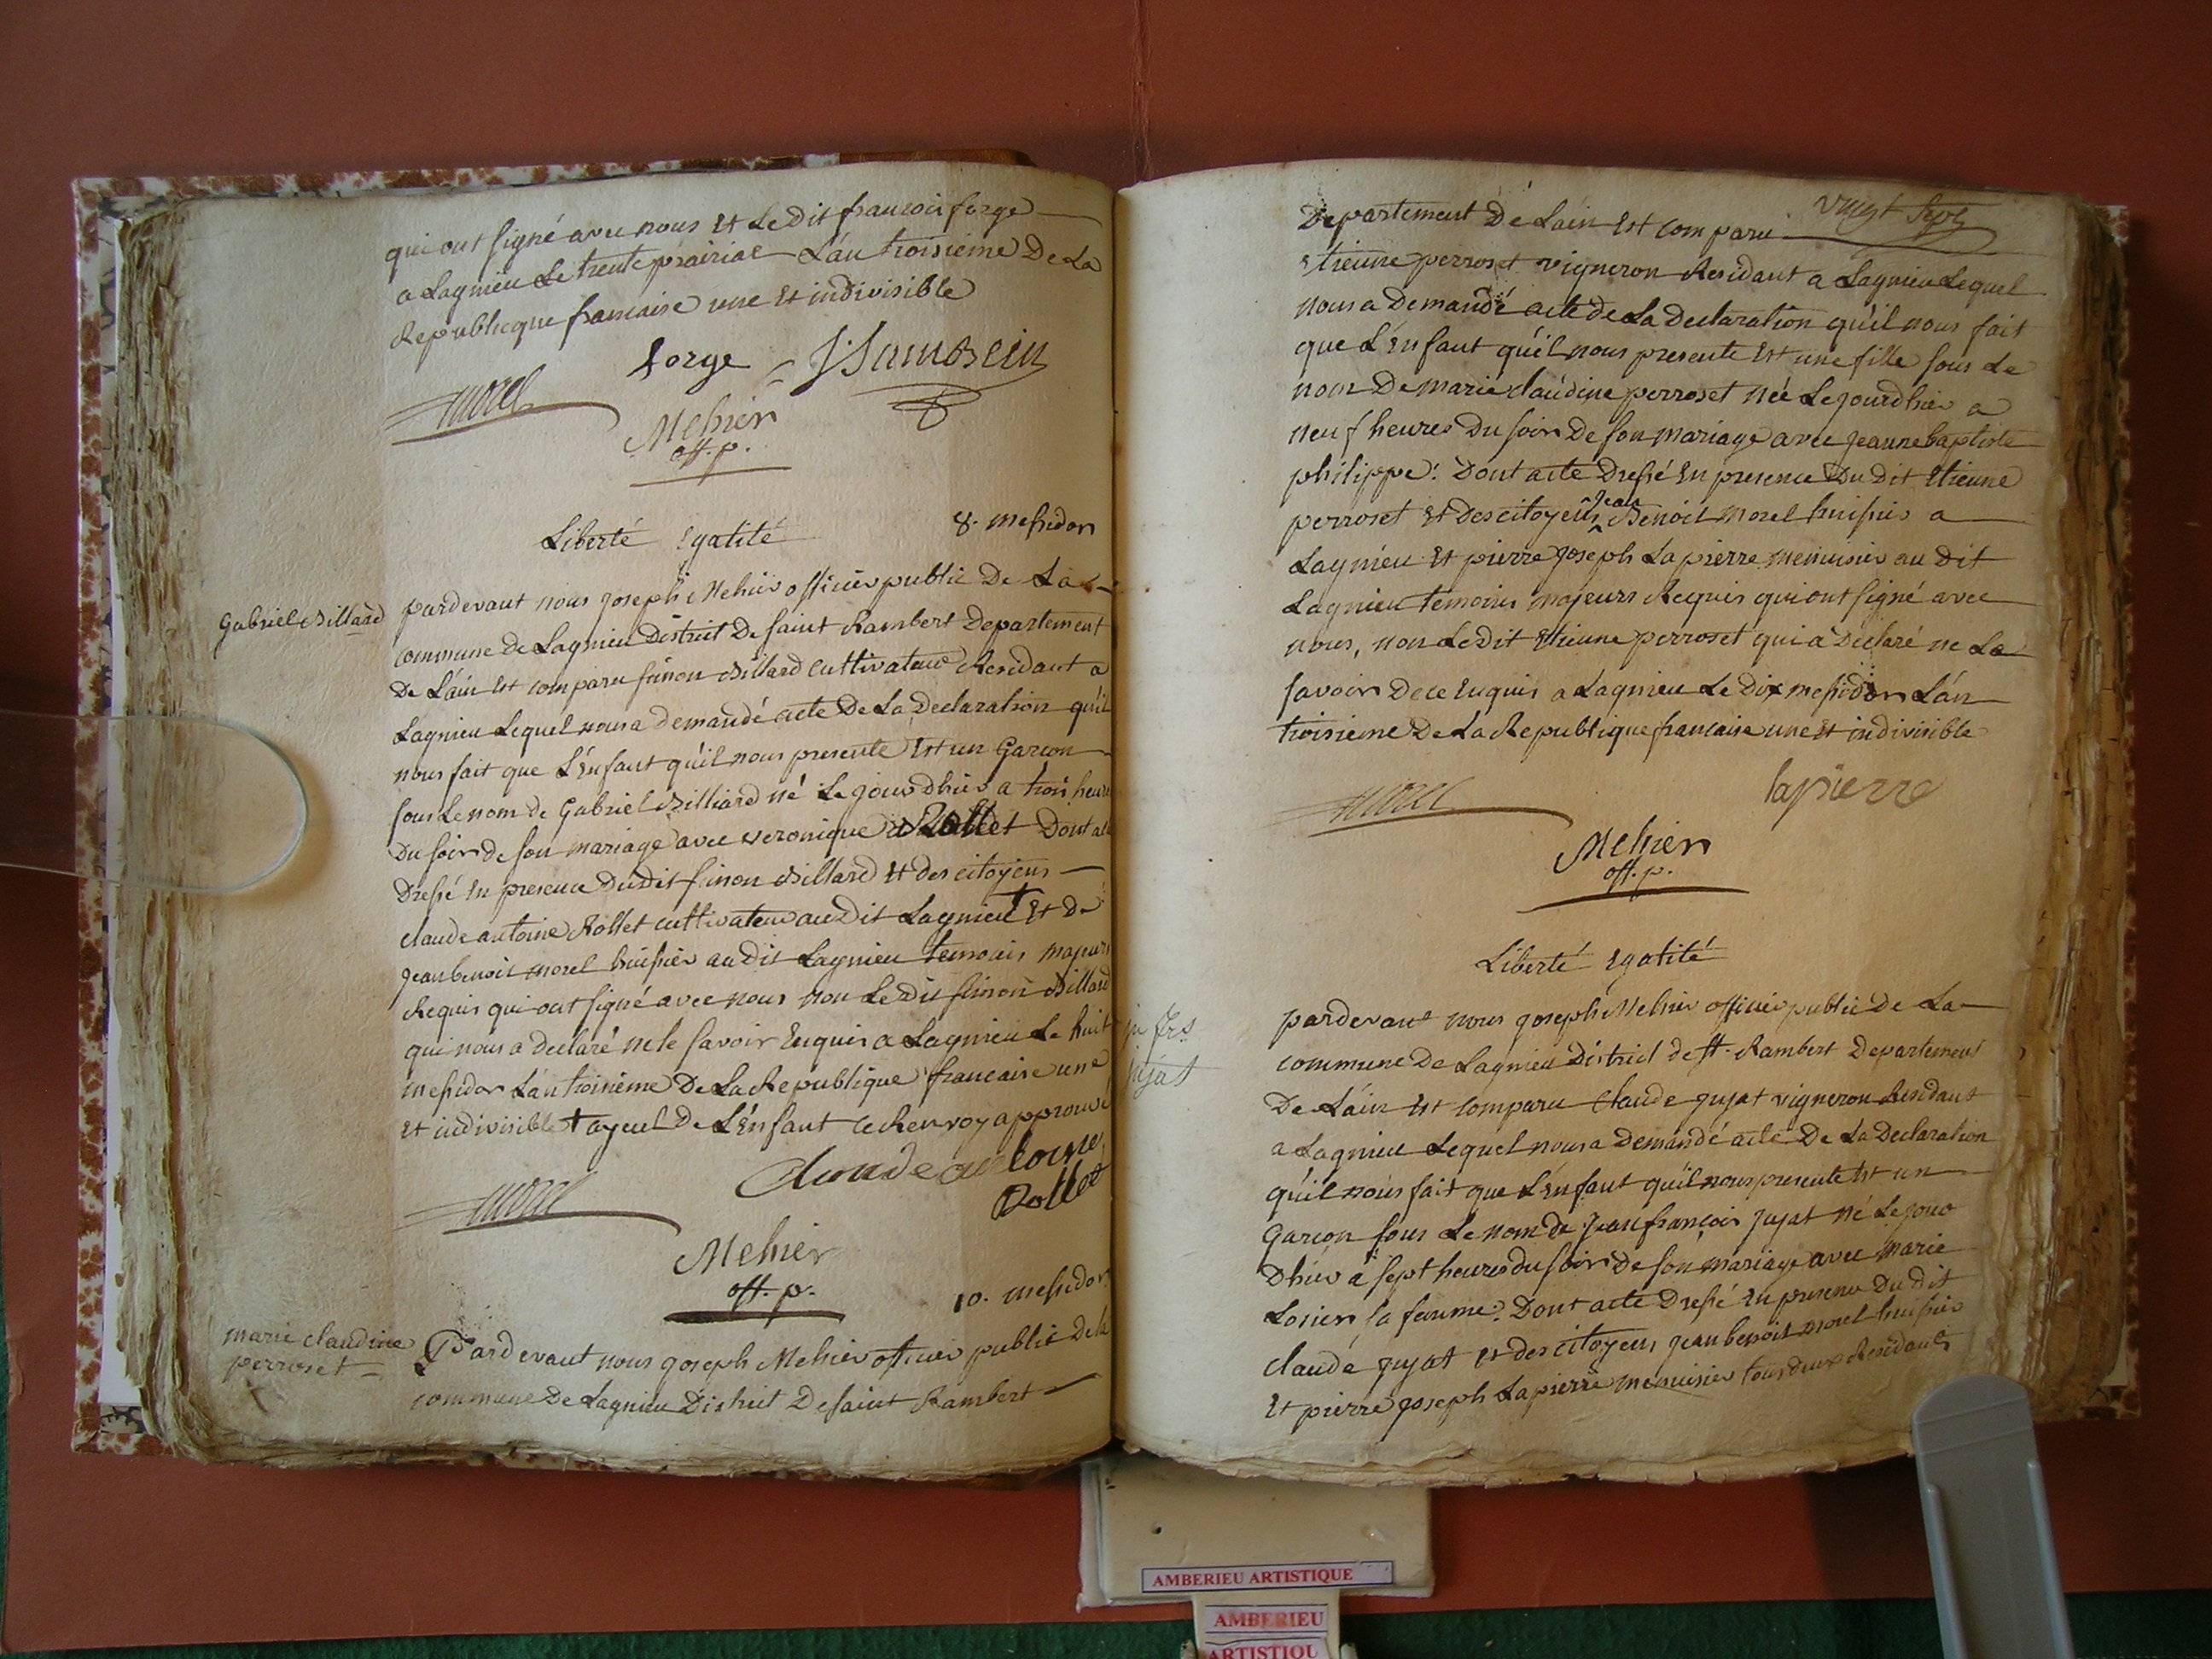 qui ont signé avec nous Et Le Dit francois forge
a Lagnieu Le trente prairial L'an troisieme De La
Republicque francaise une Et indivisible
forge
morel
Mehier
off. p.
Liberté Egalité
8. messidor
Gabriel Billard
pardevant nous joseph Mehier officier public De La
commune De Lagnieu District De saint Rambert Departement
De L'ain Est comparu simon Billard cultivateur Residant a
Lagnieu Lequel nous a demandé acte De La Declaration qu'il
nous fait que L'Enfant qu'il nous presente Est un Garcon
sous Le nom de Gabriel Billiard né Le jour d'hier a trois heure
Du soir de son mariage avec veronique Rollet Dont acte
Dressé En presence Dudit simon Billard Et des citoyens
claude antoine Rollet cultivateur au Dit Lagnieu † Et De
jean benoit morel huissier au dit Lagnieu temoins majeurs
Requis qui ont signé avec nous non Le Dit simon Billard
qui nous a declaré ne le savoir Enquis a Lagnieu Le huit
messidor L'an troisieme De La Republique francaise une
Et indivisible † ayeul De L'Enfant ce Renvoy approuvé
claude antoine
Rollet
morel
Mehier
off. p.
10. messidor
marie claudine
perroset
Pardevant nous joseph Mehier officier public De la
commune De Lagnieu District De saint Rambert
vingt sept
Departement De L'ain Est comparu
Etienne perroset vigneron Residant a Lagnieu Lequel
nous a Demandé acte de La Declaration qu'il nous fait
que L'Enfant qu'il nous presente Est une fille sous Le
nom De marie claudine perroset née Le jour d'hier a
neuf heures Du soir De son mariage avec jeanne baptiste
philippe : Dont acte Dressé En presence Du Dit Etienne
perroset Et des citoyens jean Benoit morel huissier a
Lagnieu Et pierre joseph Lapierre menuisier au Dit
Lagnieu temoins majeurs Requis qui ont signé avec
nous, non Le Dit Etienne perroset qui a Declaré ne La
savoir De ce Enquis a Lagnieu Le Dix messidor L'an
troisieme De La Republique francaise une Et indivisible
morel
lapierre
Mehier
off. p.
Liberté Egalité
jn frs
jujat
pardevant nous joseph Mehier officier public De La
commune De Lagnieu District de st. Rambert Departement
De L'ain Est comparu claude jujat vigneron Residant
a Lagnieu Lequel nous a Demandé acte De La Declaration
qu'il nous fait que L'Enfant qu'il nous presente Est un
Garcon sous Le nom de jean françois jujat né Le jour
D'hier a sept heures du soir De son mariage avec marie
Losier sa femme : Dont acte Dressé En presence Du Dit
claude jujat Et des citoyens jean benoit morel huissier
Et pierre joseph Lapierre menuisier tous deux Residants
AMBERIEU ARTISTIQUE
AMBERIEU